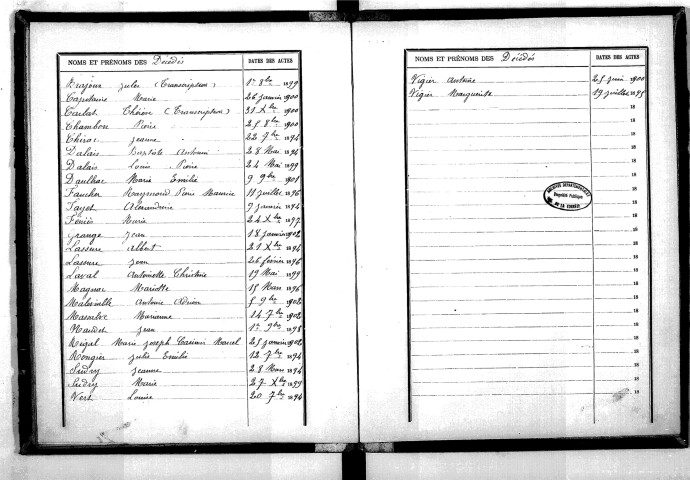 NOMS ET PRÉNOMS DES Décédés DATES DES ACTES
Brajoux Jules (Transcription) 1er 8bre 1899
Marie 26 Janvier 1900
Thérèse (Transcription) 31 Xbre 1900
Chambon Pierre 25 8bre 1900
Chirac Jeanne 22 7bre 1894
Dalais Baptiste Antonin 28 Mai 1896
Dalais Louis Pierre 24 Mai 1899
Daulhac Marie Emilie 9 9bre 1901
Faucher Raymond Pierre Maurice 11 Juillet 1896
Fayet Alexandrine 9 Janvier 1894
Feniès Marie 24 Xbre 1897
Grange Jean 18 Janvier 1902
Lassure Albert 21 Xbre 1894
Lassure Jean 26 février 1896
Laval Antoinette Christine 19 Mai 1899
Magnac Mariette 15 Mars 1896
Antoine Adrien 5 9bre 1902
Marianne 14 7bre 1902
Jean 1er 9bre 1898
Rigal Marie Joseph Casimir Marcel 25 Janvier 1902
Rongier Julie Emilie 12 7bre 1894
Sudry Jeanne 28 Mars 1894
Sudry Marie 27 Xbre 1899
Vert Louise 20 7bre 1894
NOMS ET PRÉNOMS DES Décédés DATES DES ACTES
Vigier Antoine 25 Juin 1900
Vigier Marguerite 19 Juillet 1895
18
18
18
18
18
ARCHIVES DÉPARTEMENTALES
Propriété Publique
DE LA CORRÈZE
18
18
18
18
18
18
18
18
18
18
18
18
18
18
18
18
18